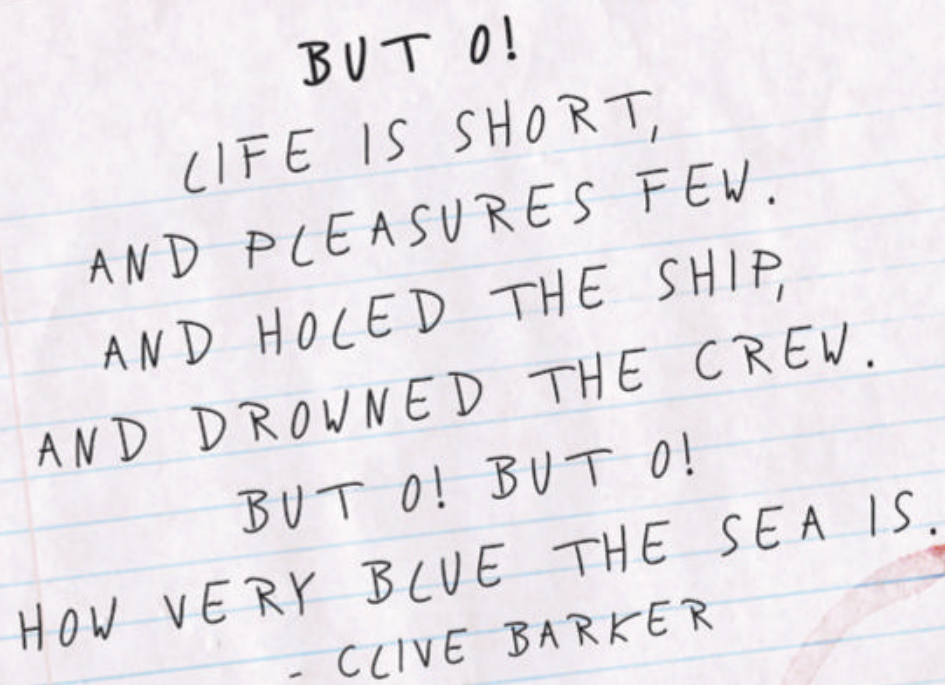 BUT O!
LIFE IS SHORT,
AND PLEASURES FEW.
AND HOLED THE SHIP,
AND DROWNED THE CREW.
BUT O! BUT O!
HOW VERY BLUE THE SEA IS.
- CLIVE BARKER